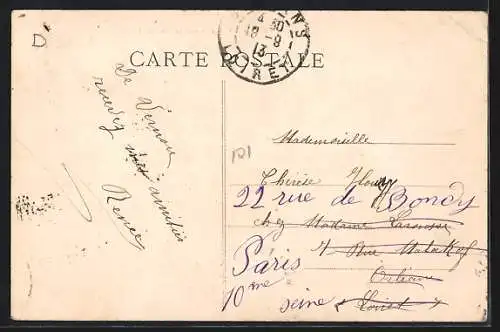 D
4 30
18-9
13
LOIRET
CARTE POSTALE
De Vernou
recevez mes amitiés
Renée
101
Mademoiselle
Thérèse Fleury
22 rue de Bondy
chez Madame
7 Rue Malakoff
Paris
Orléans
10me
Seine Loiret